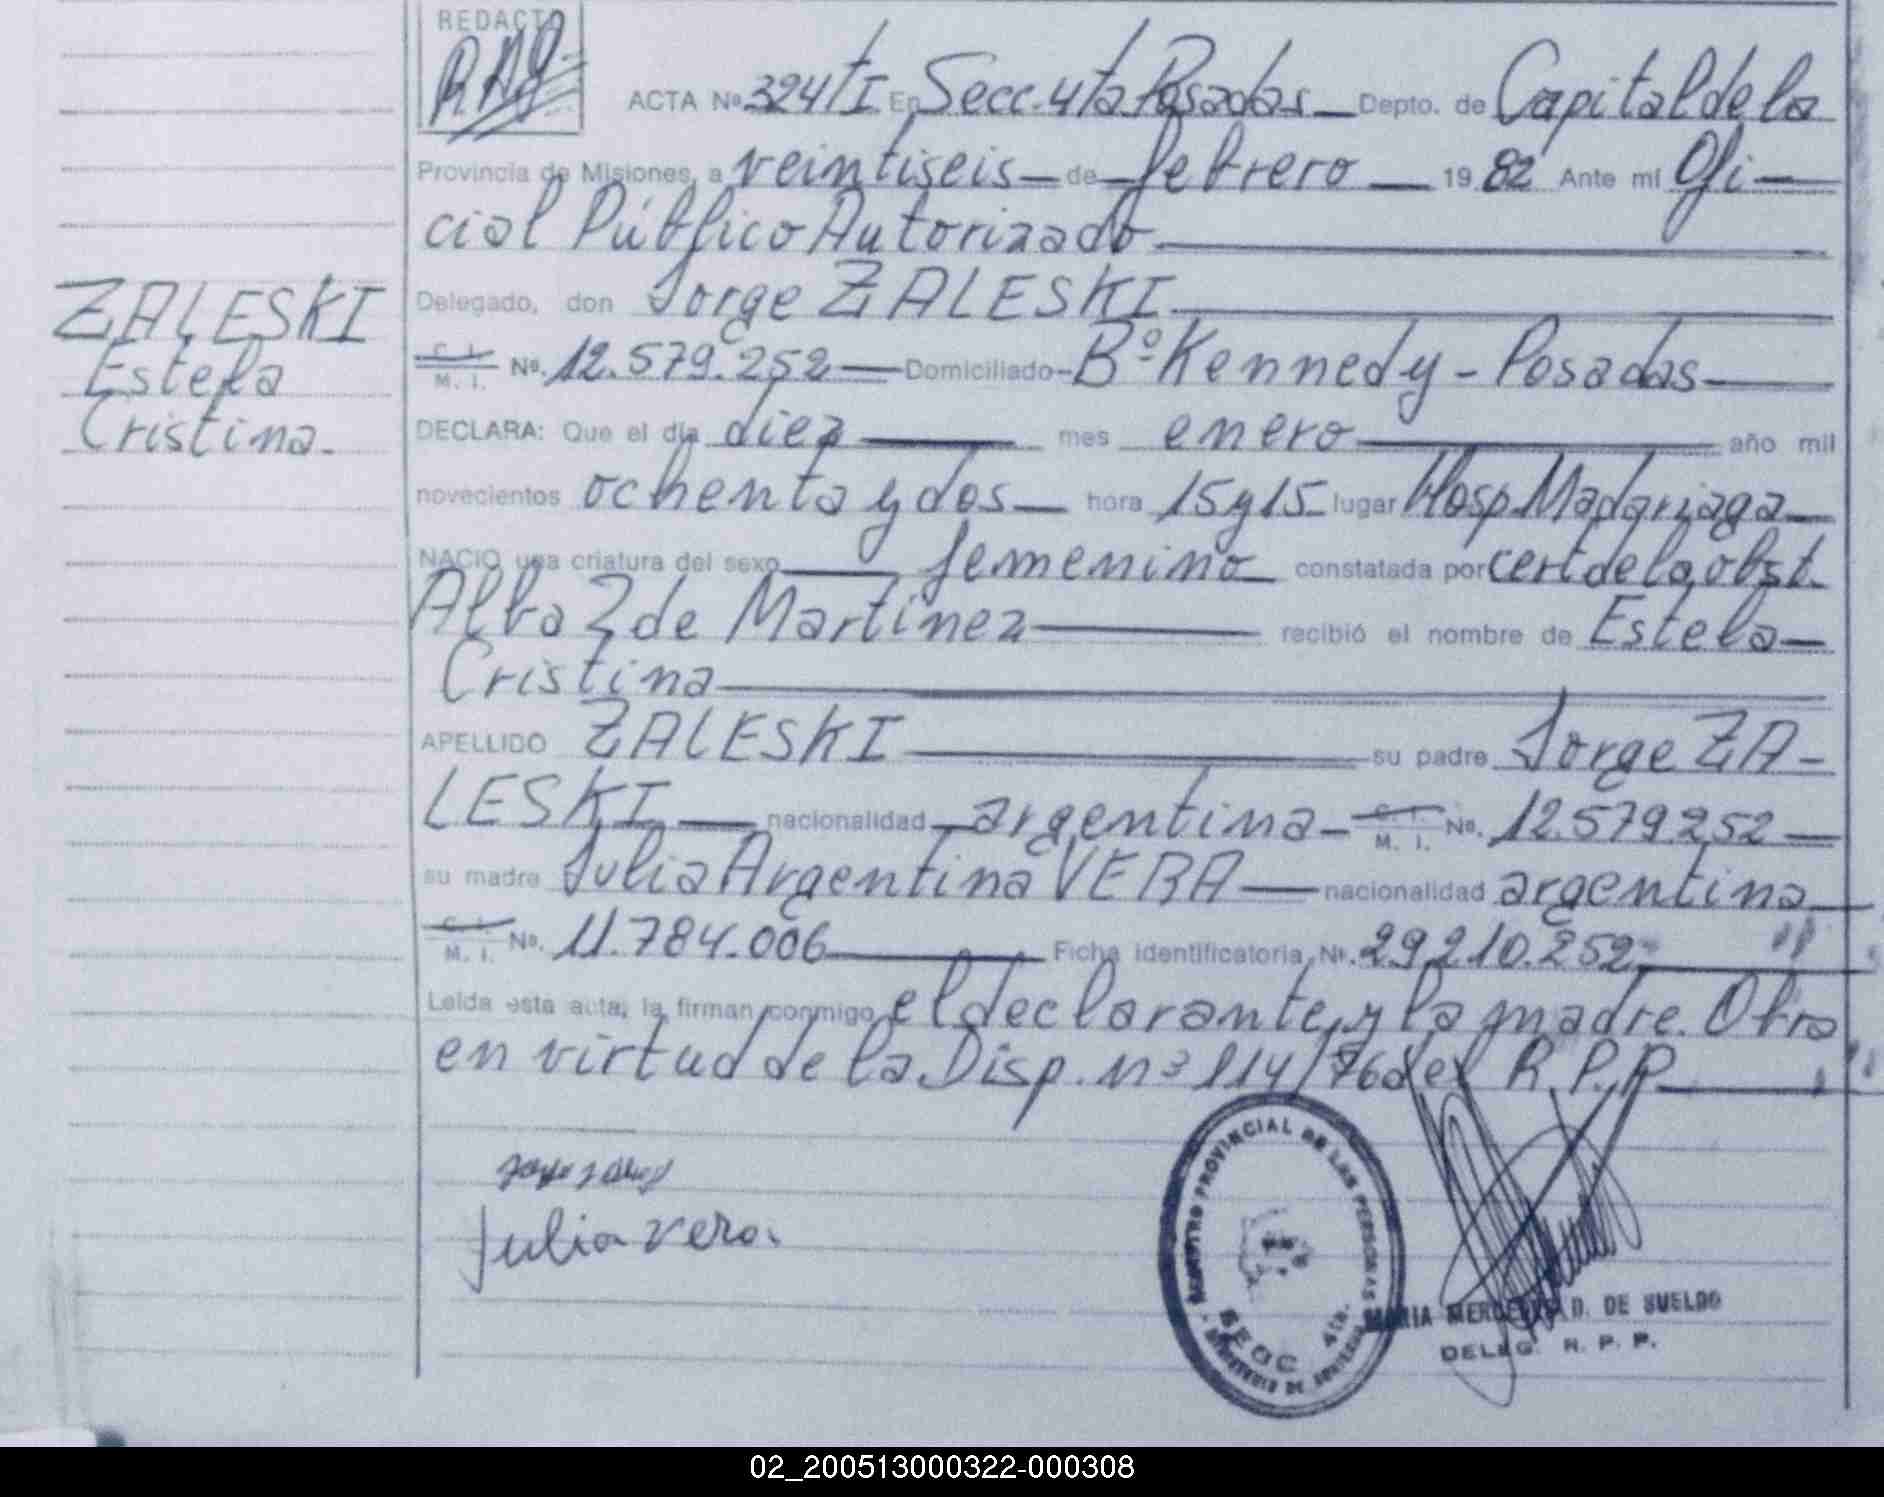 REDACTO
ACTA Nº 324 tI En Secc. 4ta Posadas Depto. de Capital de la
Provincia de Misiones, a veintiseis de febrero 1982 Ante mí Ofi-
cial Público Autorizado
Delegado, don Jorge ZALESKI
C. I. M. I. Nº. 12.579.252 Domiciliado Bº Kennedy - Posadas
DECLARA: Que el día diez mes enero año mil
novecientos ochenta y dos hora 15 y 15 lugar Hosp. Madariaga
NACIO una criatura del sexo femenino constatada por cert de la obst.
Alba Z de Martínez recibió el nombre de Estela
Cristina
APELLIDO ZALESKI su padre Jorge ZA-
LESKI nacionalidad argentina C. I. M. I. Nº. 12.579.252
su madre Julia Argentina VERA nacionalidad argentina
C. I. M. I. Nº. 11.784.006 Ficha identificatoria, Nº. 29.210.252
Leída esta acta, la firman conmigo el declarante y la madre. Obra
en virtud de la Disp. nº 114/76 del R.P.P.
ZALESKI
Estela
Cristina
Julia Vera
REGISTRO PROVINCIAL DE LAS PERSONAS
SECC 4ta.
MINISTERIO DE GOBIERNO
MARIA MERCEDES D. DE SUELDO
DELEG. R. P. P.
02_200513000322-000308